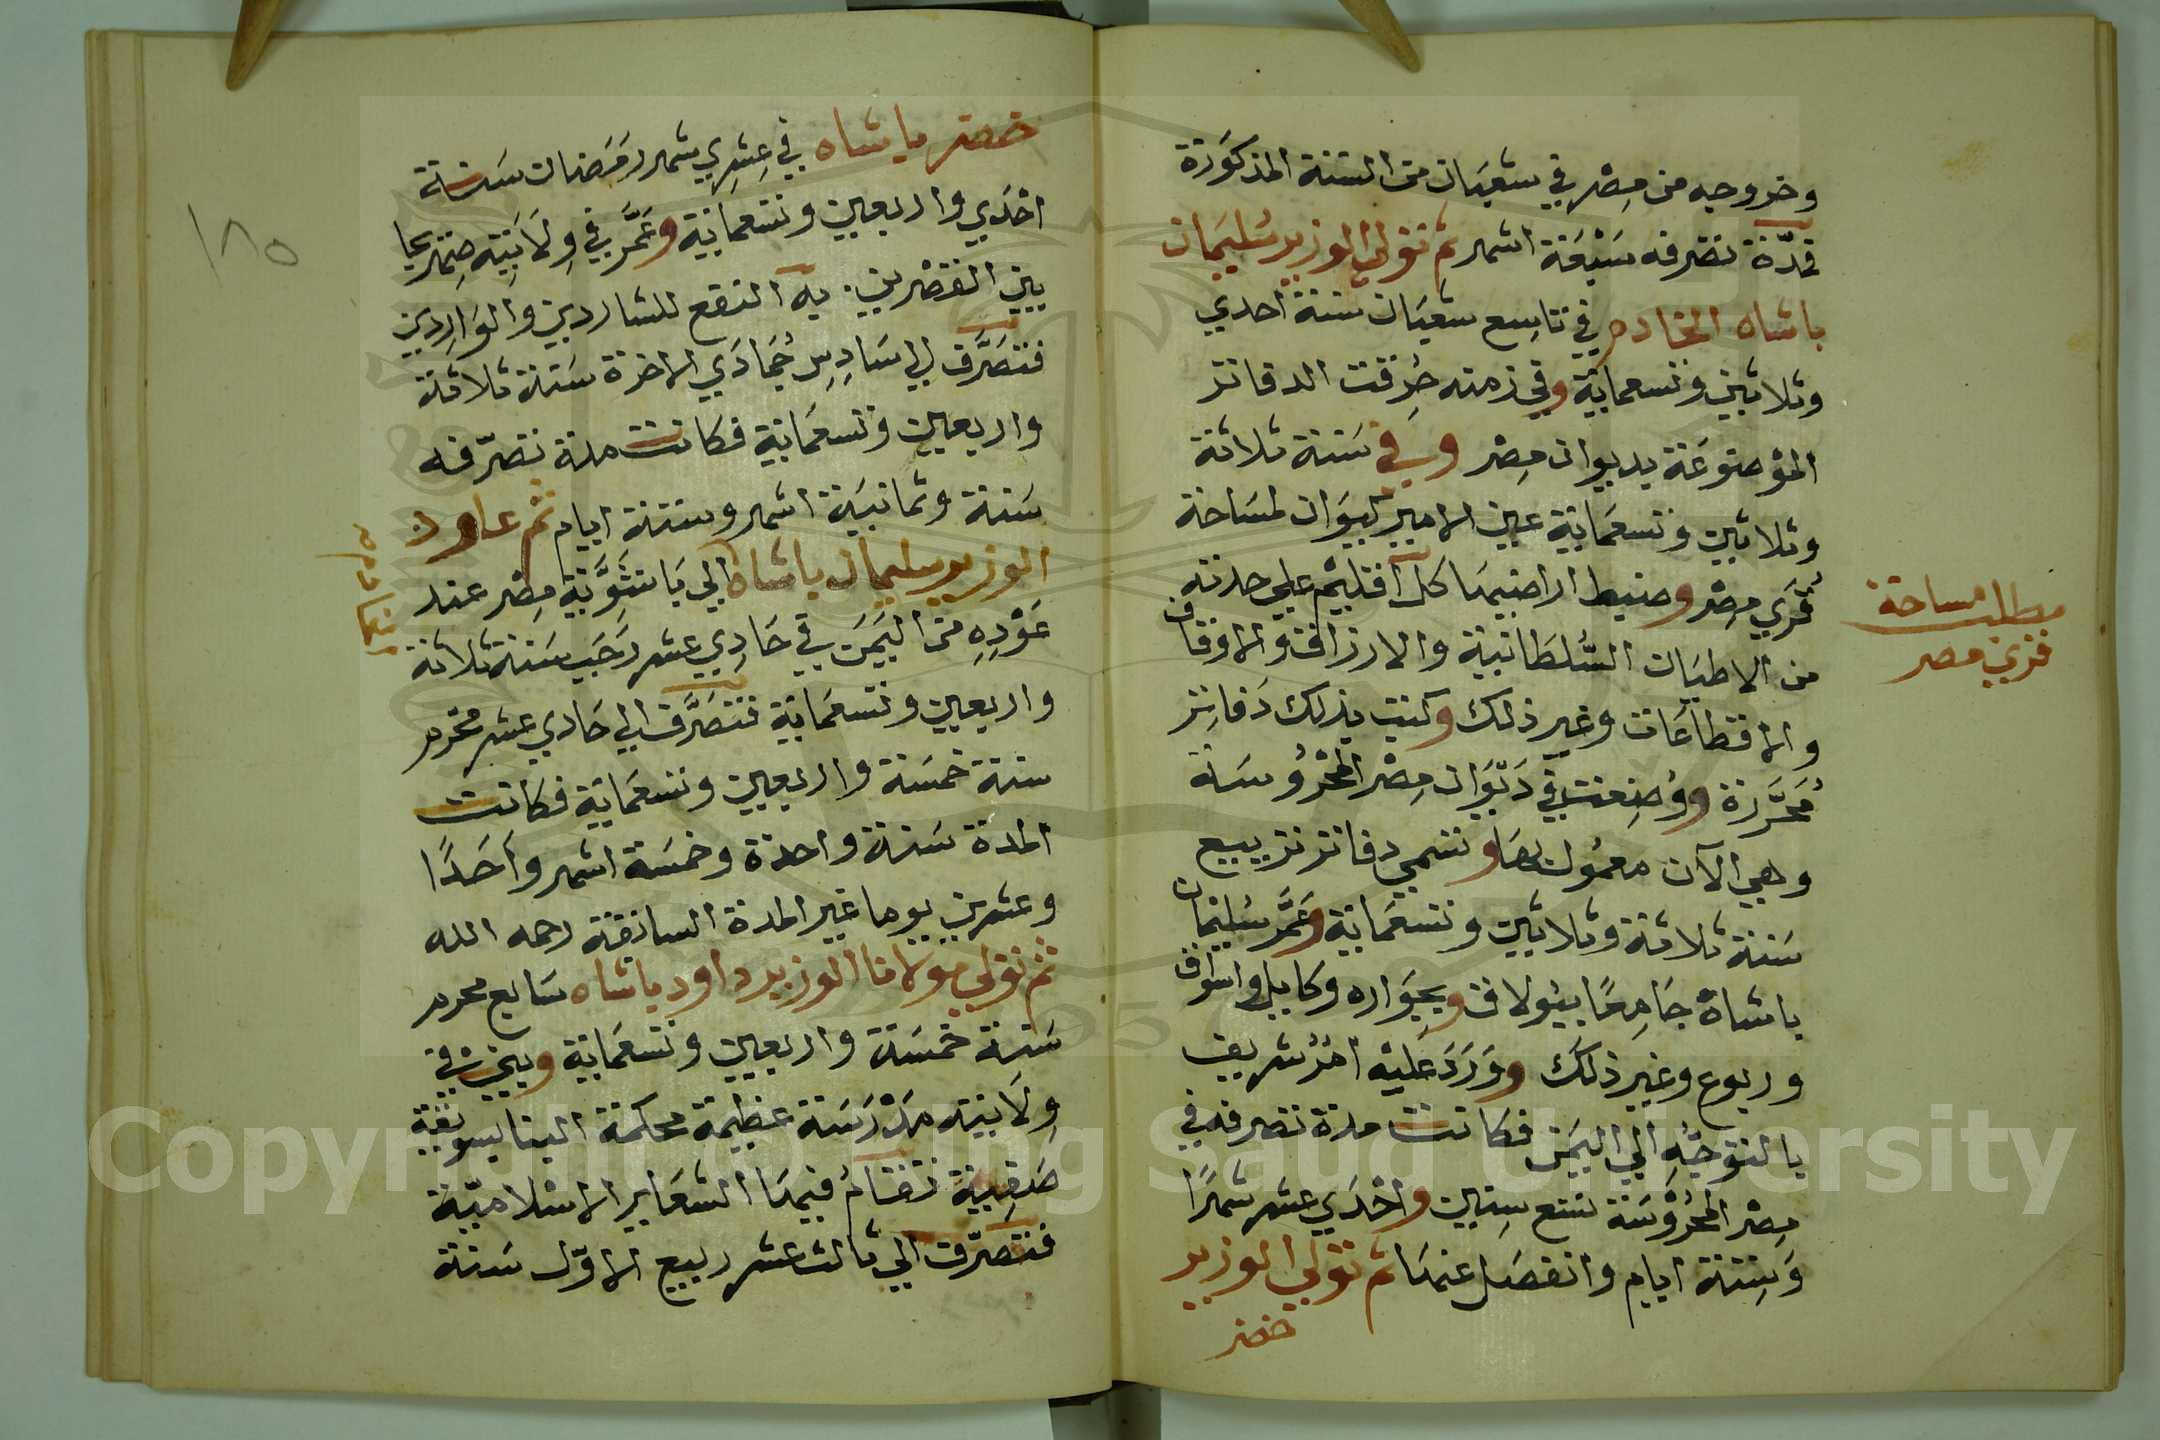 وخروجه من مِصْر في شعبَان من السنة المذكوَرة
فمدّة تصَرفه سَبْعَة اشهر ثم تولي الوزير سُليمَان
باشاه الخادم في تاسِع شعبَان سَنة احدي
وثلاثين وتسعمائة وفي زمنه حُرِقت الدفاتر
الموْضوعَة بديوان مِصْر وفي سَنة ثلاثة
وثلاثين وتسعمَائة عين الامير كيوَان لمسَاحة
قُرَي مِصْر وضبط اراضيهَا كل اقليْم علي حدته
من الاطيَان السُّلطانية والارزاق والاوقاف
والاقطاعَات وغير ذلك وكتبت بذلك دَفاتِر
مُحَرَّرة ووُضِعت في دَيوَان مِصْر المحْرُوسَة
وهي الآن معمُول بهَا وتسَمي دفاتر تربيع
سَنة ثلاثة وثلاثين وتسعمَائة وعَمَّر سُليمَان
باشاهْ جَامِعًا ببُولاق وبجوَاره وكايل واسواق
وربوع وغير ذلَك ووَرَدَ عَليْه امْر شريف
بالتوجُّه الي اليَمَن فكانت مدة تصرفه في
مِصْر المحْرُوسَة تسع سِنين واحْدَي عشر شهرًا
وَسِتة ايام وانفصَل عنهَا ثم تولي الوزير
خضر
مطلب مساحة
قري مصر
خضر باشاه في عِشرِي شهر رمَضان سَنة
احْدَي واربعين وتسعمائية وعَمَّر في وِلَايَته صِهْريجا
بين القصْرين به النفع للشاردين والوَارِدين
فتصَرَّف الي سَادِس جُمادَي الاخرة سَنة ثلاثة
واربعين وتسعمَائية فكانت مدة تصَرّفه
سَنة وثمانيَة اشهر وستة ايام ثم عاود
الوزير سليمان باشاه الي بَاشوِيَّة مِصْر عند
عَوْدِهِ من اليَمَن في حَادِي عشر رَجَب سَنة ثلاثة
واربعين وتسعمَائة فتصَرَّف الي حَادي عشر محرم
سنة خمسَة واربعين وتسعمَائة فكانت
المدة سَنة واحدة وخمسَة اشهر وأحَدًا
وعشرين يوما غير المدة السابقة رحمه الله
ثم تولي مولانا الوزير داود باشاه سَابع محرم
سَنة خمسَة واربعين وتسعمَائة وبنيت في
وِلَايته مدْرَسَة عظيمَة محكمة البنا بسويقة
صَفِيّة تقَامُ فيهَا الشعَاير الاسْلاميّة
فتصرّف الي ثالث عشر ربيع الاوّل سَنة
١٨٥